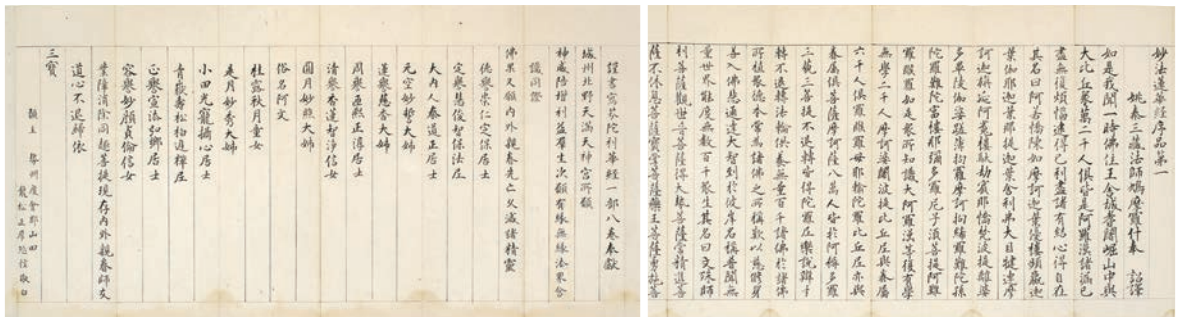 妙法蓮華經序品第一
姚秦三藏法師鳩摩羅什奉 詔譯
如是我聞一時佛住王舍城耆闍崛山中與
大比丘衆萬二千人俱皆是阿羅漢諸漏已
盡無復煩惱逮得己利盡諸有結心得自在
其名曰阿若憍陳如摩訶迦葉優樓頻螺迦
葉伽耶迦葉那提迦葉舍利弗大目犍連摩
訶迦旃延阿㝹樓馱劫賓那憍梵波提離婆
多畢陵伽婆蹉薄拘羅摩訶拘絺羅難陀孫
陀羅難陀富樓那彌多羅尼子須菩提阿難
羅睺羅如是衆所知識大阿羅漢等復有學
無學二千人摩訶波闍波提比丘尼與眷屬
六千人俱羅睺羅母耶輸陀羅比丘尼亦與
眷屬俱菩薩摩訶薩八萬人皆於阿耨多羅
三藐三菩提不退轉皆得陀羅尼樂說辯才
轉不退轉法輪供養無量百千諸佛於諸佛
所植衆德本常為諸佛之所稱歎以慈修身
善入佛慧通達大智到於彼岸名稱普聞無
量世界能度無數百千衆生其名曰文殊師
利菩薩觀世音菩薩得大勢菩薩常精進菩
薩不休息菩薩寶掌菩薩藥王菩薩勇施菩
謹書寫芬陀利華經一部八卷奉獻
城州北野天滿天神宮所願
神威陪增利益群生次願有緣無緣法界含
識同證
佛果又願內外親眷先亡久滅諸精靈
德譽崇仁定保居士
定譽慈俊智保法尼
大內人泰道正居士
元空妙誓大姉
蓮譽慈香大姉
周譽正薄居士
清譽香蓮智淨信女
圓月妙照大姉
俗名阿文
桂露秋月童女
是月妙秀大姉
小田光寵攝心居士
青嶽壽松柏遐禪尼
心譽宣法幻鄉居士
容譽妙顏貞倫信女
業障消除同趣菩提現存內外親眷師友
道心不退歸依
三寶
願主 勢州度會郡山田
松正 敬白